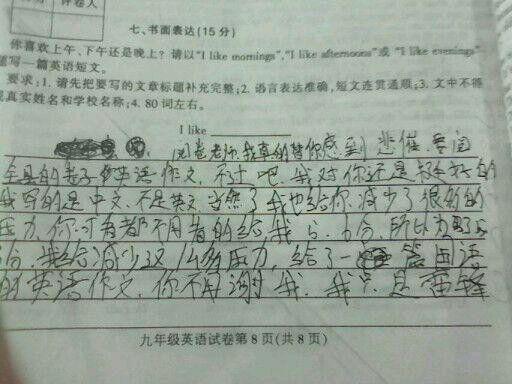 评卷人
七、书面表达(15分)
你喜欢上午、下午还是晚上？请以"I like mornings","I like afternoons"或 "I like evenings"
写一篇英语短文。
要求:1. 请先把要写的文章标题补充完整;2. 语言表达准确,短文连贯通顺;3. 文中不得
真实姓名和学校名称;4. 80 词左右。
I like
阅卷老师,我真的替你感到 悲催,要阅
全县的卷子 英语作文,不过吧,我对你还是 的
我写的是中文,不是英文,当然了我也给你减少了很多的
压力,你可看都不用看的给我 分,所以为了
给 减少这么多压力,给了一 篇
的英语作文,你不用谢我,我只是雷锋
九年级英语试卷第 8 页(共 8 页)